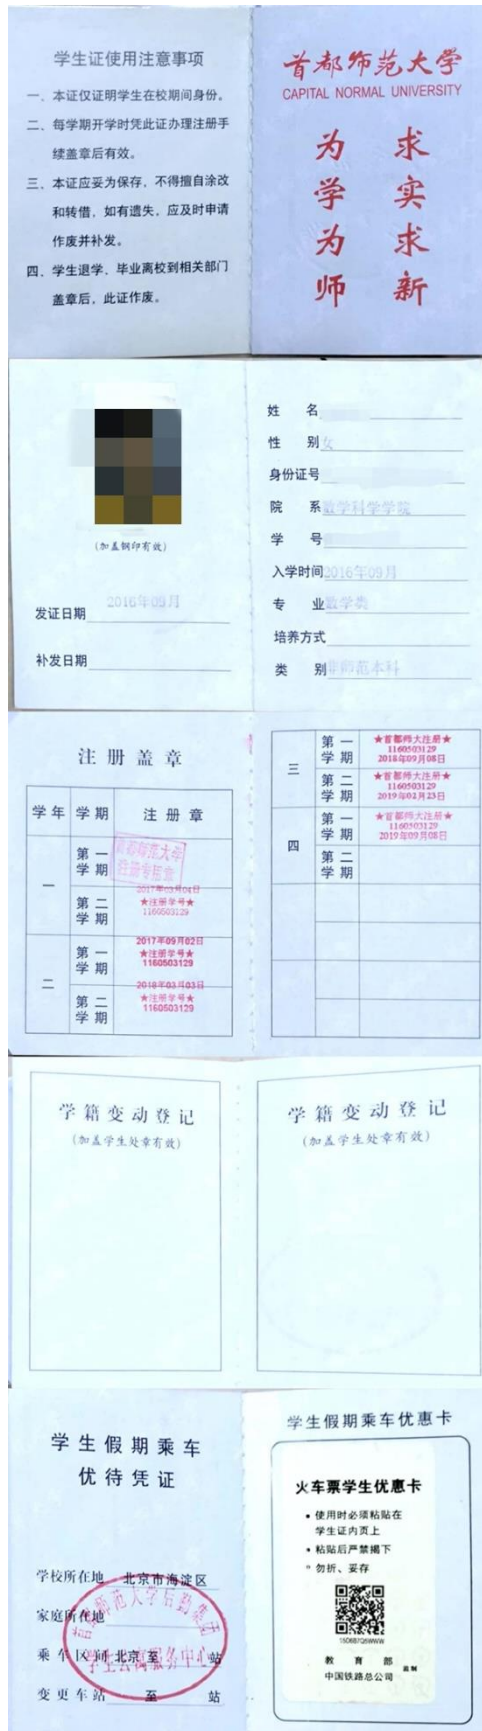 学生证使用注意事项
一、本证仅证明学生在校期间身份。
二、每学期开学时凭此证办理注册手
续盖章后有效。
三、本证应妥为保存，不得擅自涂改
和转借，如有遗失，应及时申请
作废并补发。
四、学生退学、毕业离校到相关部门
盖章后，此证作废。
首都师范大学
CAPITAL NORMAL UNIVERSITY
为学为师
求实求新
(加盖钢印有效)
发证日期 2016年09月
补发日期
姓 名
性 别 女
身份证号
院 系 数学科学学院
学 号
入学时间 2016年09月
专 业 数学类
培养方式
类 别 非师范本科
注册盖章
学年 学期 注册章
一 第一学期 首都师范大学
注册专用章
第二学期 2017年03月04日
★注册学号★
1160503129
二 第一学期 2017年09月02日
★注册学号★
1160503129
第二学期 2018年03月03日
★注册学号★
1160503129
三 第一学期 ★首都师大注册★
1160503129
2018年09月08日
第二学期 ★首都师大注册★
1160503129
2019年02月23日
四 第一学期 ★首都师大注册★
1160503129
2019年09月08日
第二学期
学籍变动登记
(加盖学生处章有效)
学籍变动登记
(加盖学生处章有效)
学生假期乘车
优待凭证
学校所在地 北京市海淀区
家庭所在地
乘车区间 北京 至 站
变更车站 至 站
首都师范大学后勤集团
学生公寓服务中心
学生假期乘车优惠卡
火车票学生优惠卡
• 使用时必须粘贴在
学生证内页上
• 粘贴后严禁揭下
• 勿折、妥存
教育部
中国铁路总公司 监制